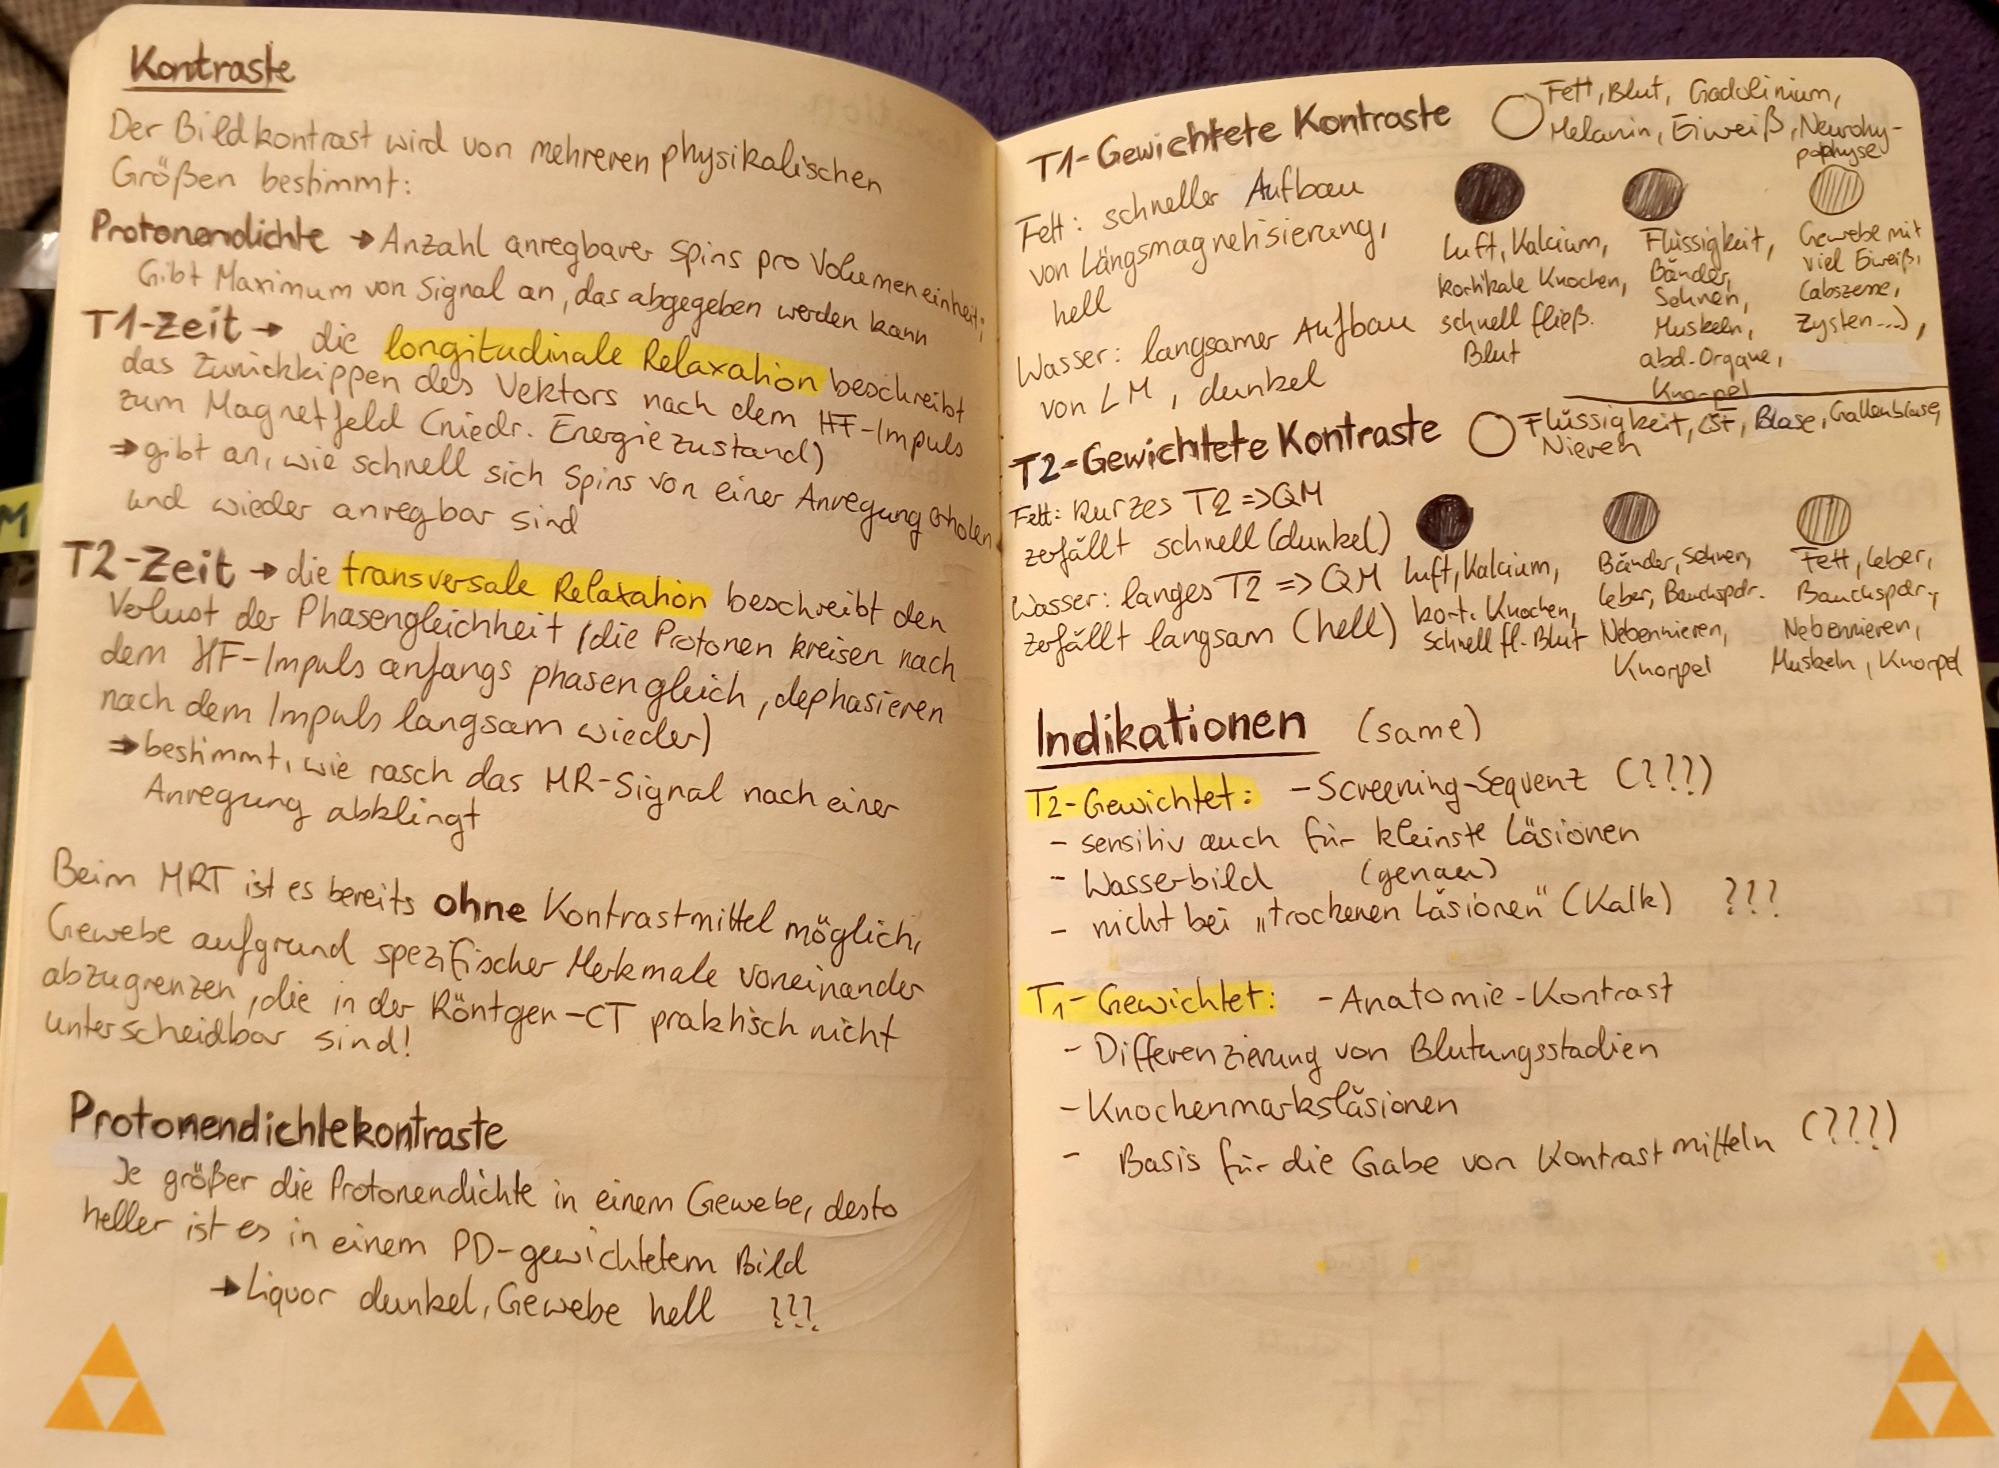 Kontraste
Der Bildkontrast wird von mehreren physikalischen
Größen bestimmt:
Protonendichte → Anzahl anregbarer Spins pro Volumeneinheit;
Gibt Maximum von Signal an, das abgegeben werden kann
T1-Zeit → die longitudinale Relaxation beschreibt
das Zurückkippen des Vektors nach dem HF-Impuls
zum Magnetfeld (niedr. Energiezustand)
⇒ gibt an, wie schnell sich Spins von einer Anregung erholen
und wieder anregbar sind
T2-Zeit → die transversale Relaxation beschreibt den
Verlust der Phasengleichheit (die Protonen kreisen nach
dem HF-Impuls anfangs phasengleich, dephasieren
nach dem Impuls langsam wieder)
⇒ bestimmt, wie rasch das MR-Signal nach einer
Anregung abklingt
Beim MRT ist es bereits ohne Kontrastmittel möglich,
Gewebe aufgrund spezifischer Merkmale voneinander
abzugrenzen, die in der Röntgen-CT praktisch nicht
unterscheidbar sind!
Protonendichtekontraste
Je größer die Protonendichte in einem Gewebe, desto
heller ist es in einem PD-gewichtetem Bild
→ Liquor dunkel, Gewebe hell ???
M
T1-Gewichtete Kontraste
Fett, Blut, Gadolinium,
Melanin, Eiweiß, Neurohy-
pophyse
Fett: schneller Aufbau
von Längsmagnetisierung,
hell
Wasser: langsamer Aufbau
von LM, dunkel
Luft, Kalcium,
kortikale Knochen,
schnell fließ.
Blut
Flüssigkeit,
Bänder,
Sehnen,
Muskeln,
abd. Organe,
Knorpel
Gewebe mit
viel Eiweiß,
(abszeme,
Zysten...),
T2-Gewichtete Kontraste
Flüssigkeit, CSF, Blase, Gallenblase,
Nieren
Fett: kurzes T2 => QM
zerfällt schnell (dunkel)
Wasser: langes T2 => QM
zerfällt langsam (hell)
Luft, Kalcium,
kort. Knochen,
schnell fl. Blut
Bänder, Sehnen,
Leber, Bauchspdr.
Nebennieren,
Knorpel
Fett, Leber,
Bauchspdr.,
Nebennieren,
Muskeln, Knorpel
Indikationen (same)
T2-Gewichtet: - Screening-Sequenz (???)
- sensitiv auch für kleinste Läsionen
- Wasserbild (genau)
- nicht bei „trockenen Läsionen" (Kalk) ???
T1-Gewichtet: - Anatomie-Kontrast
- Differenzierung von Blutungsstadien
- Knochenmarksläsionen
- Basis für die Gabe von Kontrastmitteln (???)